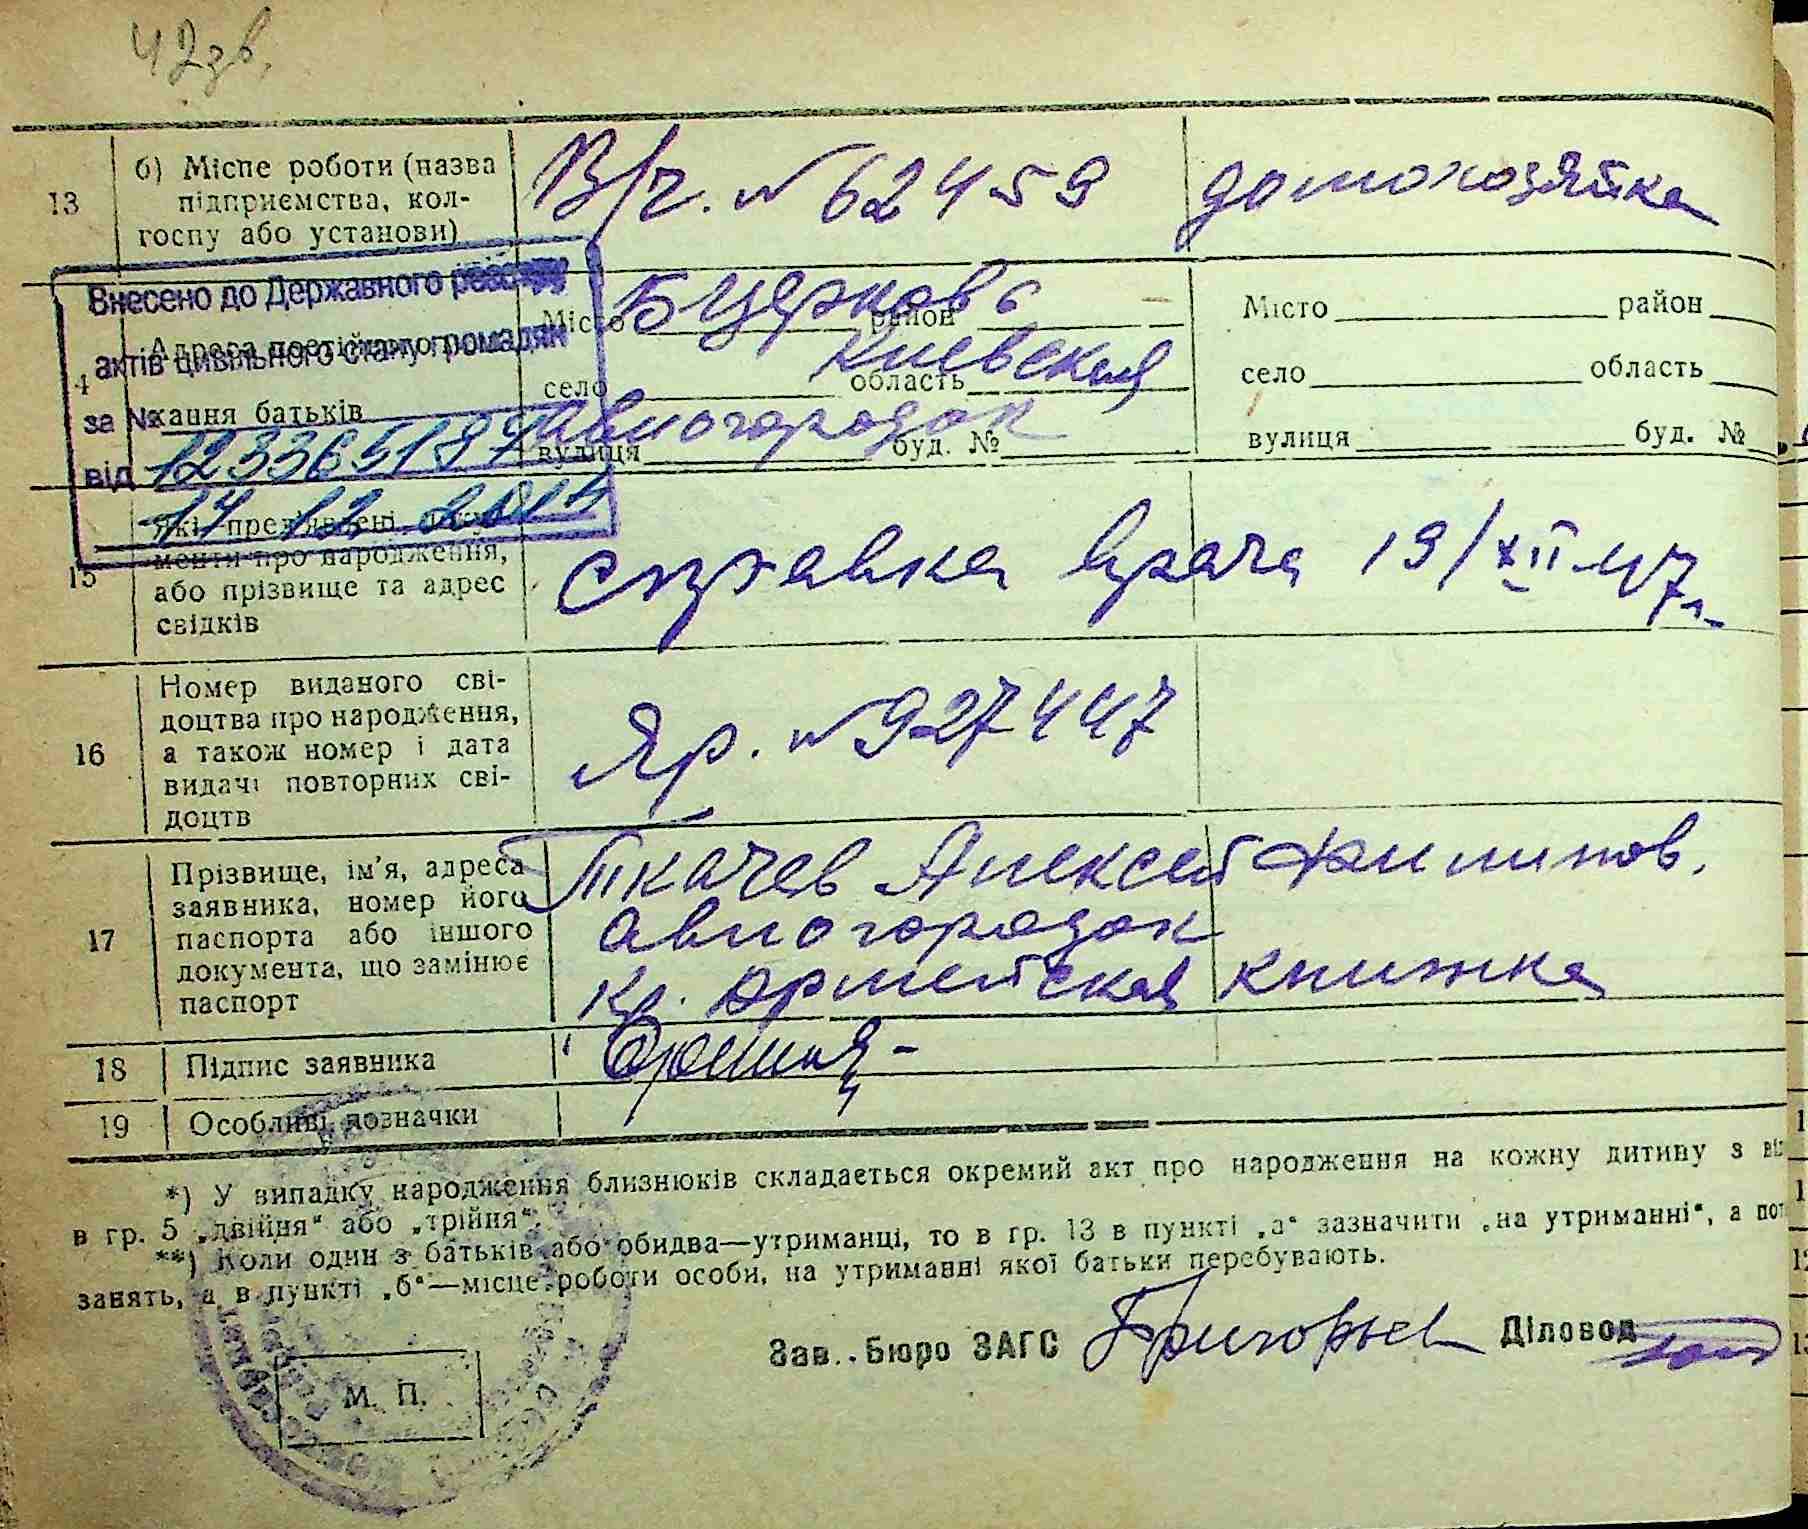 42зв.
13
б) Місце роботи (назва
підприємства, кол-
госпу або установи)
В/ч. № 62459
домохозяйка
Внесено до Державного реєстру
актів цивільного стану громадян
за №
12336518
від
14 12
Адреса постійного
кання батьків
Місто Б Церковь район
Киевская
село область
авиогородок
вулиця буд. №
Місто район
село область
вулиця буд. №
15
які пред'явлені
менти про народження,
або прізвище та адрес
свідків
справка врача 19/XII-47г.
16
Номер виданого сві-
доцтва про народження,
а також номер і дата
видачі повторних сві-
доцтв
Яр. №927447
17
Прізвище, ім'я, адреса
заявника, номер його
паспорта або іншого
документа, що замінює
паспорт
Ткачев Алексей Филипов.
авиогородок
Кр. Армейская книжка
18
Підпис заявника
19
Особливі дозначки
*) У випадку народження близнюків складається окремий акт про народження на кожну дитину з
в гр. 5 „двійня“ або „трійня“.
**) Коли один з батьків або обидва—утриманці, то в гр. 13 в пункті „а“ зазначити „на утриманні“, а
занять, а в пункті „б“—місце роботи особи, на утриманні якої батьки перебувають.
Зав. Бюро ЗАГС Григорьев Діловод
М. П.